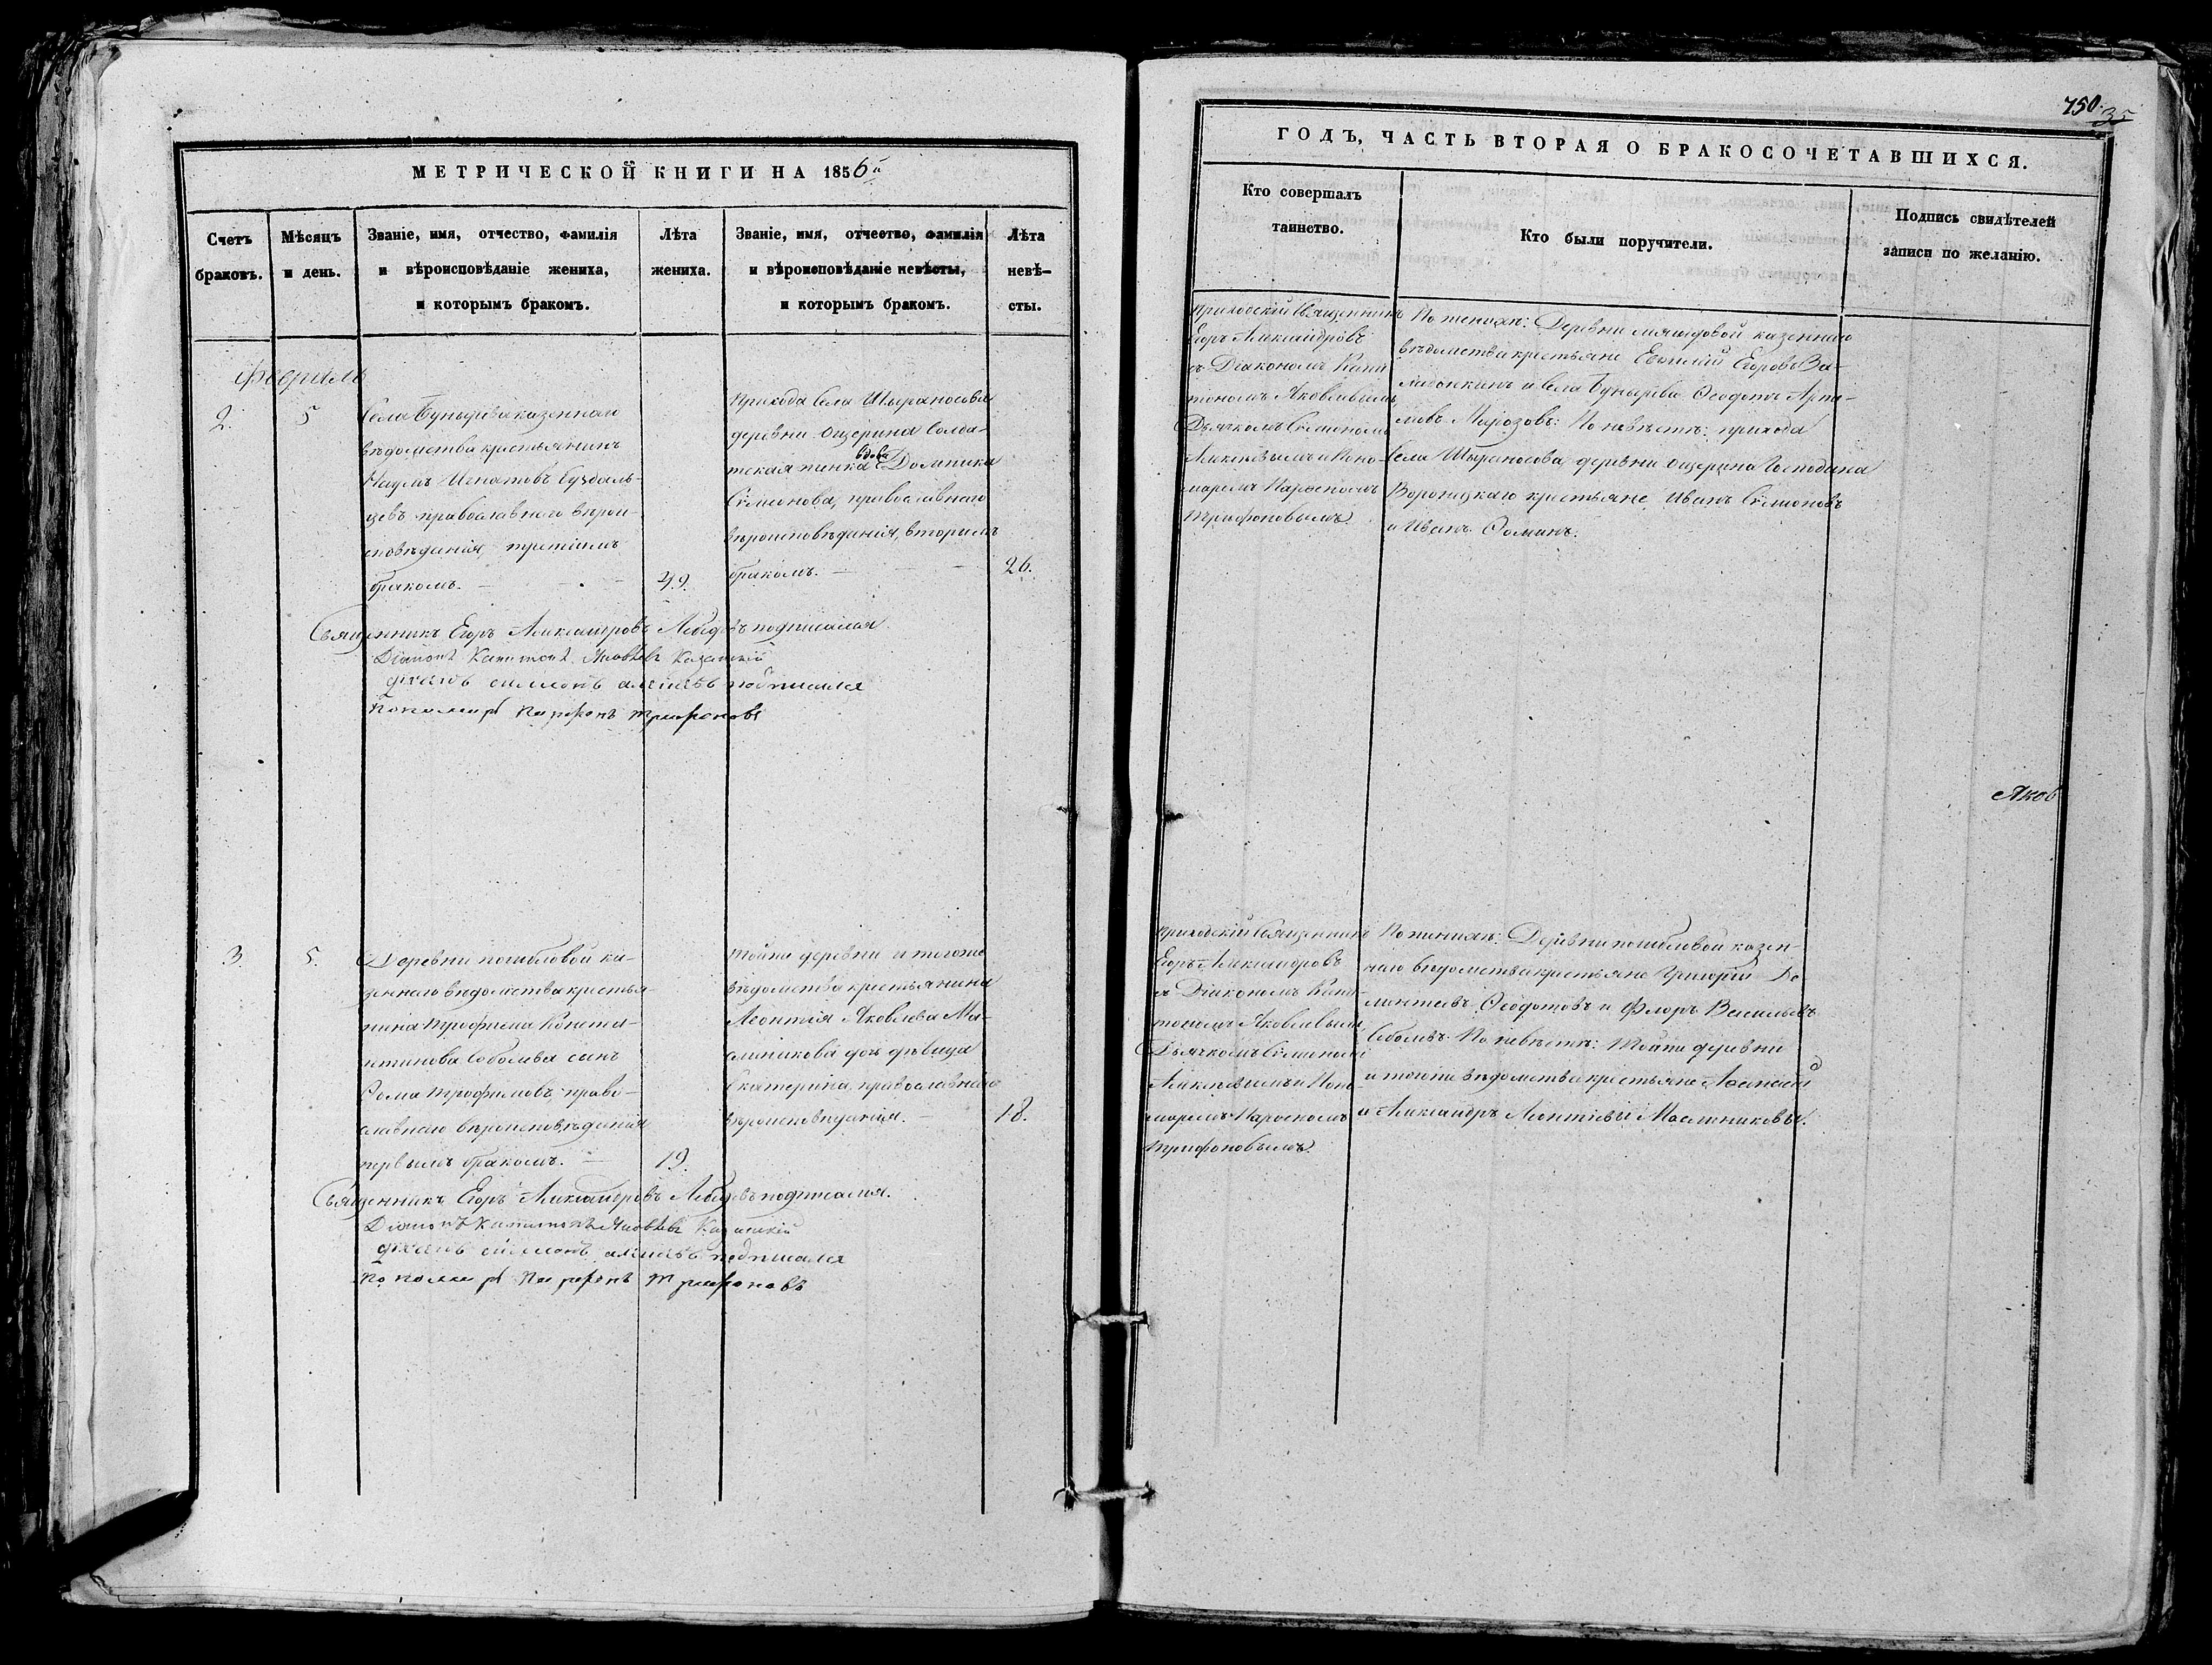 МЕТРИЧЕСКОЙ КНИГИ НА 1856й
Счетъ браковъ.
Мѣсяцъ и день.
Званіе, имя, отчество, фамилія
и вѣроисповѣданіе жениха,
и которымъ бракомъ.
Лѣта жениха.
Званіе, имя, отчество, фамилія
и вѣроисповѣданіе невѣсты,
и которымъ бракомъ.
Лѣта невѣ-
сты.
Февраль
2.
5
Села казеннаго
вѣдомства крестьянинъ
Наумъ Игнатовъ Суздаль-
цевъ православнаго вѣрои-
сповѣданія, третіимъ
бракомъ.
49.
Прихода Села Шыраносова
деревни Ощерина Солда-
тская женка вдова Домника
Симеонова, православнаго
вѣроисповѣданія, вторымъ
бракомъ.
26.
Священникъ Егоръ Александровъ Лебедевъ подписался
Діаконъ Капитонъ Яковлевъ Казанскій
дьячекъ симеонъ алексѣевъ подписался
Пономарь Парѳенъ Трифоновъ
3.
5.
Деревни ка-
зеннаго вѣдомства крестья-
нина Трофима Конста-
нтинова Соболева сынъ
Ѳома Трофимовъ, право-
славнаго вѣроисповѣданія
первымъ бракомъ.
19.
Тойже деревни и тогоже
вѣдомства крестьянина
Леонтія Яковлева Ма-
сленикова дочь дѣвица
Екатерина, православнаго
вѣроисповѣданія.
18.
Священникъ Егоръ Александровъ Лебедевъ подписался.
Діаконъ Капитонъ Яковлевъ Казанскій
дьячекъ симеонъ алексѣевъ подписался
Пономарь Парѳенъ Трифоновъ
750.
35
ГОДЪ, ЧАСТЬ ВТОРАЯ О БРАКОСОЧЕТАВШИХСЯ.
Кто совершалъ
таинство.
Кто были поручители.
Подпись свидѣтелей
записи по желанію.
Приходскій Священникъ
Егоръ Александровъ
съ Діакономъ Капи-
тономъ Яковлевымъ,
Дьячкомъ Симеономъ
Алексѣевымъ и Поно-
маремъ Парѳеномъ
Трифоновымъ.
По женихѣ: Деревни казеннаго
вѣдомства крестьяне Егоровъ За-
и Села Ѳеодотъ Арта-
мовъ Морозовъ: По невѣстѣ: прихода
Села Шыраносова деревни Ощерина Господина
Воронцкаго крестьяне, Иванъ Симеоновъ
и Иванъ Ѳоминъ.
Яков
Приходскій Священникъ
Егоръ Александровъ
съ Діакономъ Капи-
тономъ Яковлевымъ
Дьячкомъ Симеономъ
Алексѣевымъ и Поно-
маремъ Парѳеномъ
Трифоновымъ.
По женихѣ: Деревни казен-
наго вѣдомства крестьяне Григорій Де-
ментьевъ Ѳеодотовъ и Флоръ Васильевъ
Соболевъ. По невѣстѣ: Тойже деревни
и тогоже вѣдомства крестьяне Аѳанасій
и Александръ Леонтьевы Маслениковы.